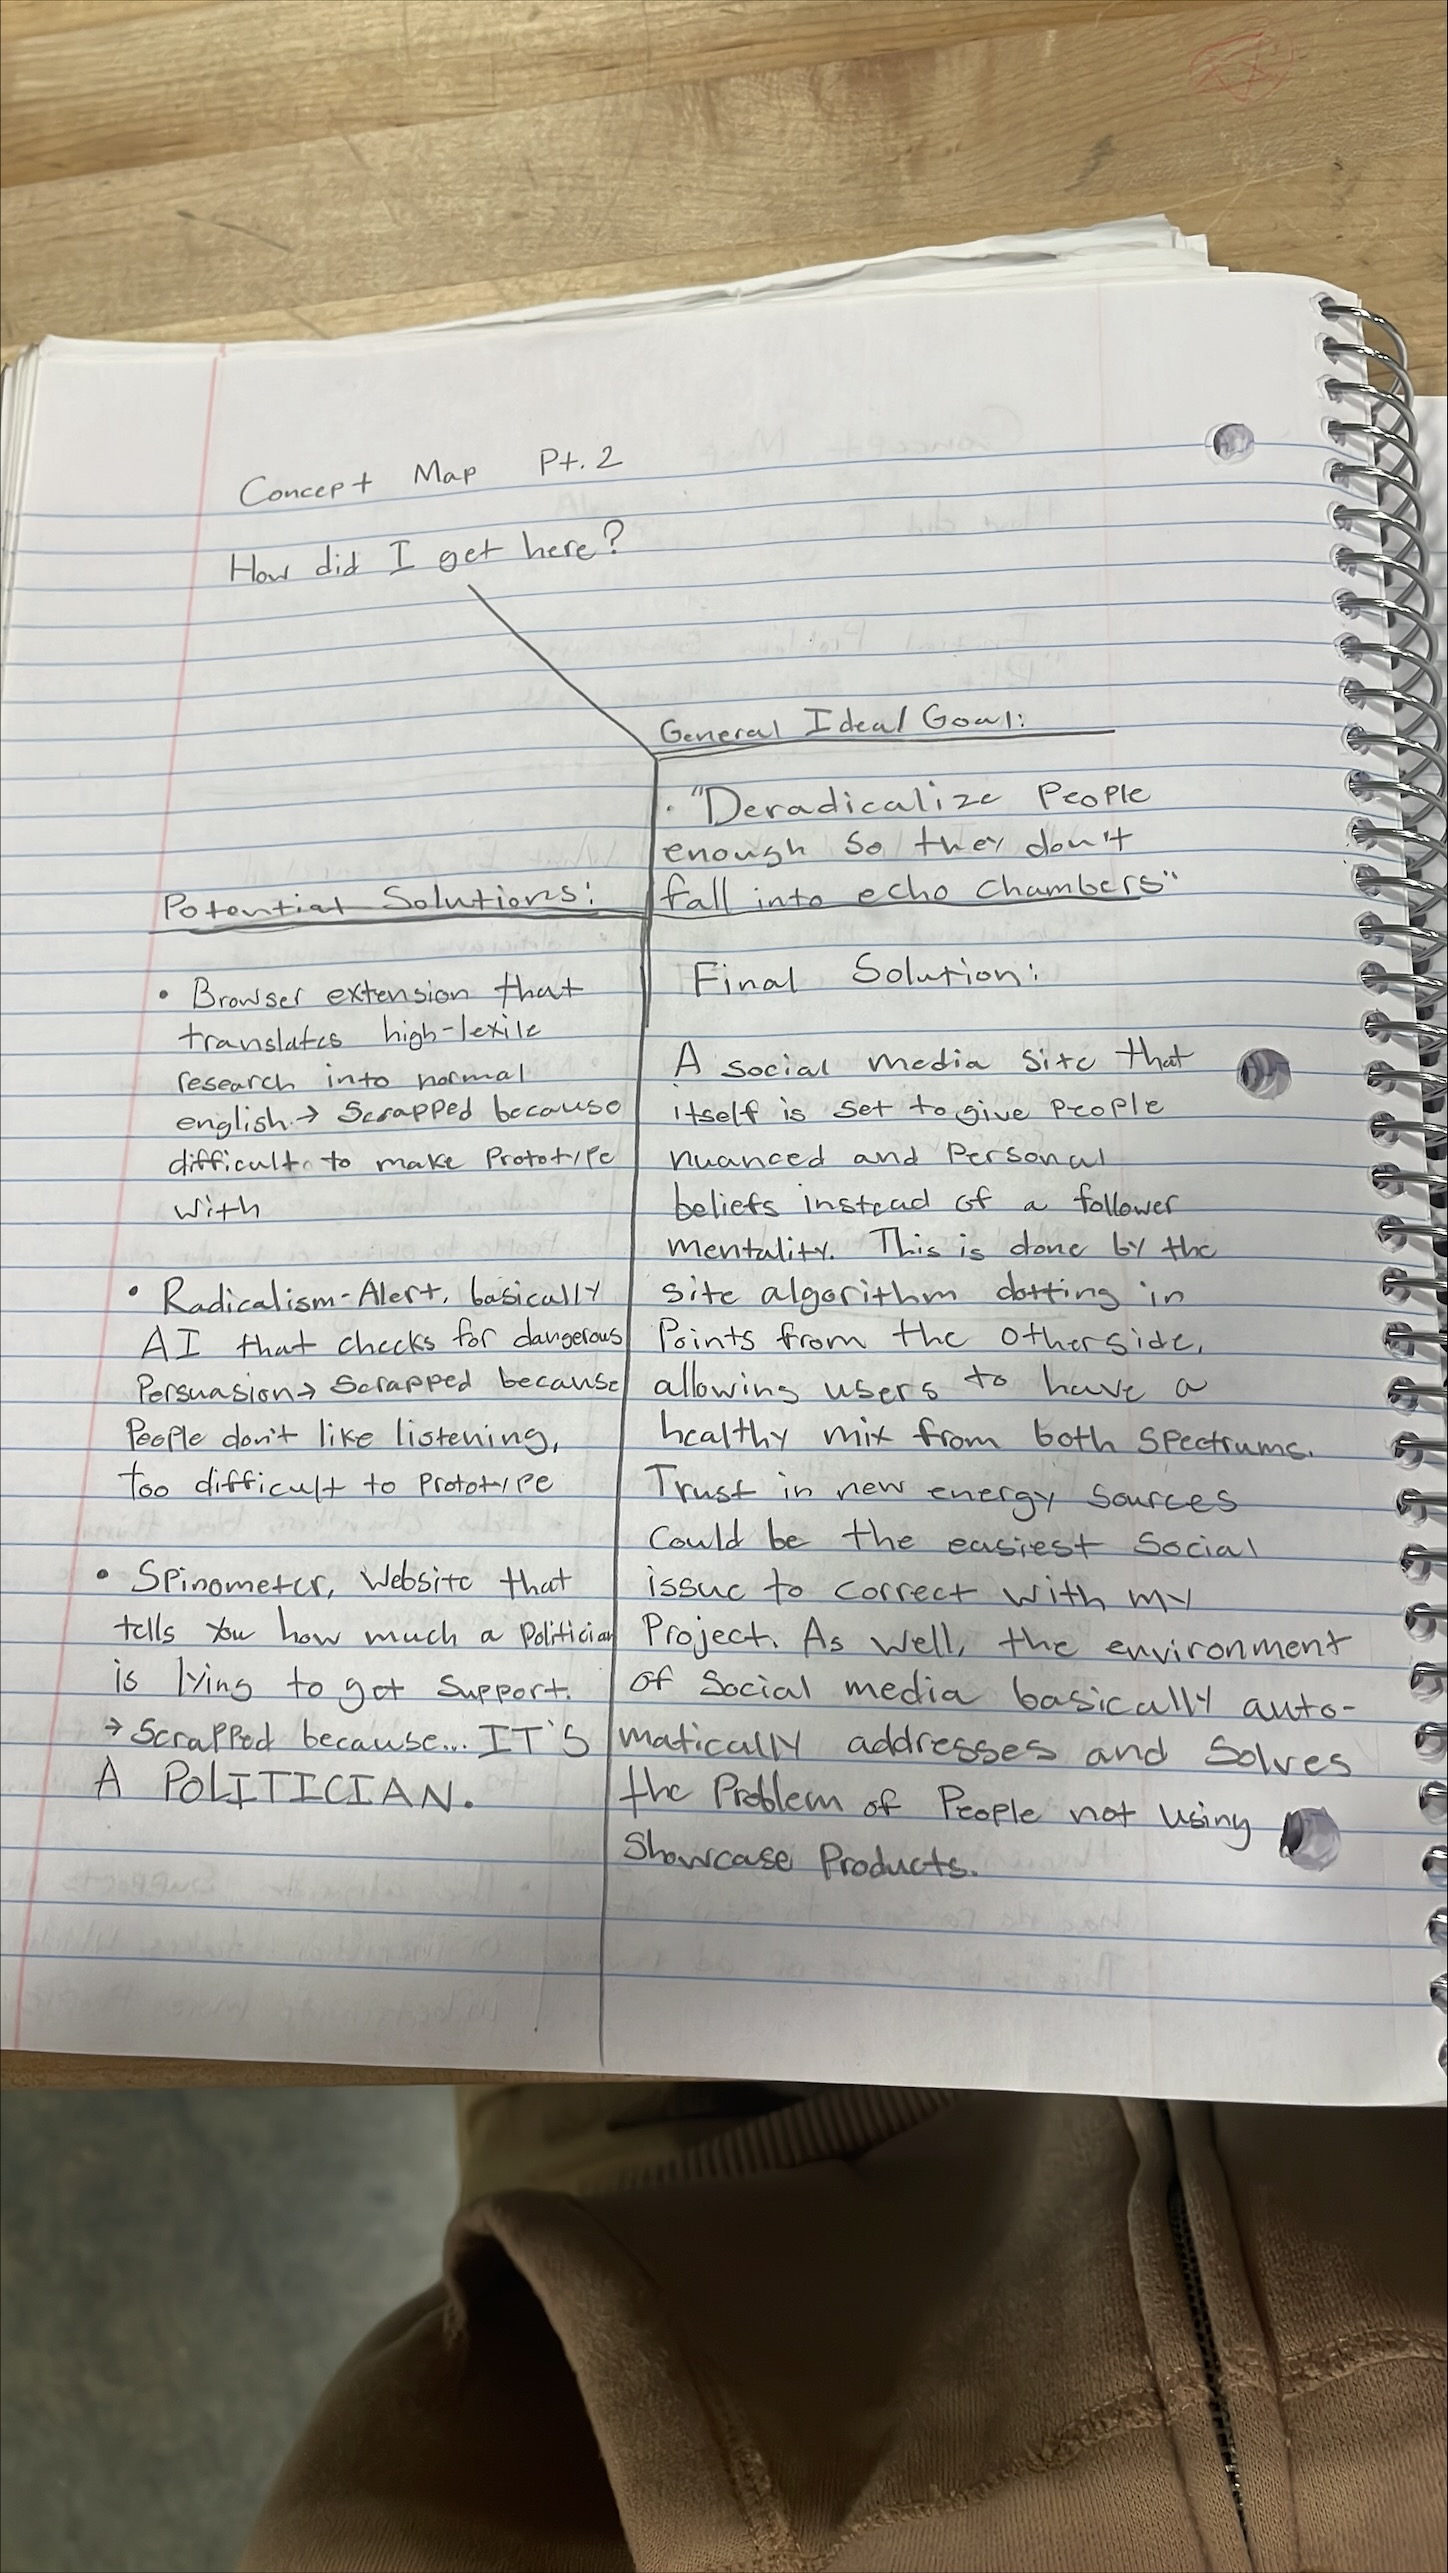 Concept Map Pt. 2
How did I get here?
General Ideal Goal:
• "Deradicalize People
enough so they don't
fall into echo chambers"
Potential Solutions:
• Browser extension that
translates high-lexile
research into normal
english → Scrapped because
difficult to make Prototype
with
• Radicalism-Alert, basically
AI that checks for dangerous
Persuasion → Scrapped because
People don't like listening,
too difficult to Prototype
• Spinometer, Website that
tells You how much a Politician
is lying to get Support.
→ Scrapped because... IT'S
A POLITICIAN.
Final Solution:
A social media site that
itself is set to give People
nuanced and Personal
beliefs instead of a follower
mentality. This is done by the
site algorithm dotting in
Points from the otherside,
allowing users to have a
healthy mix from both spectrums.
Trust in new energy sources
could be the easiest Social
issue to correct with my
Project. As well, the environment
of Social media basically auto-
matically addresses and solves
the Problem of People not using
Showcase Products.